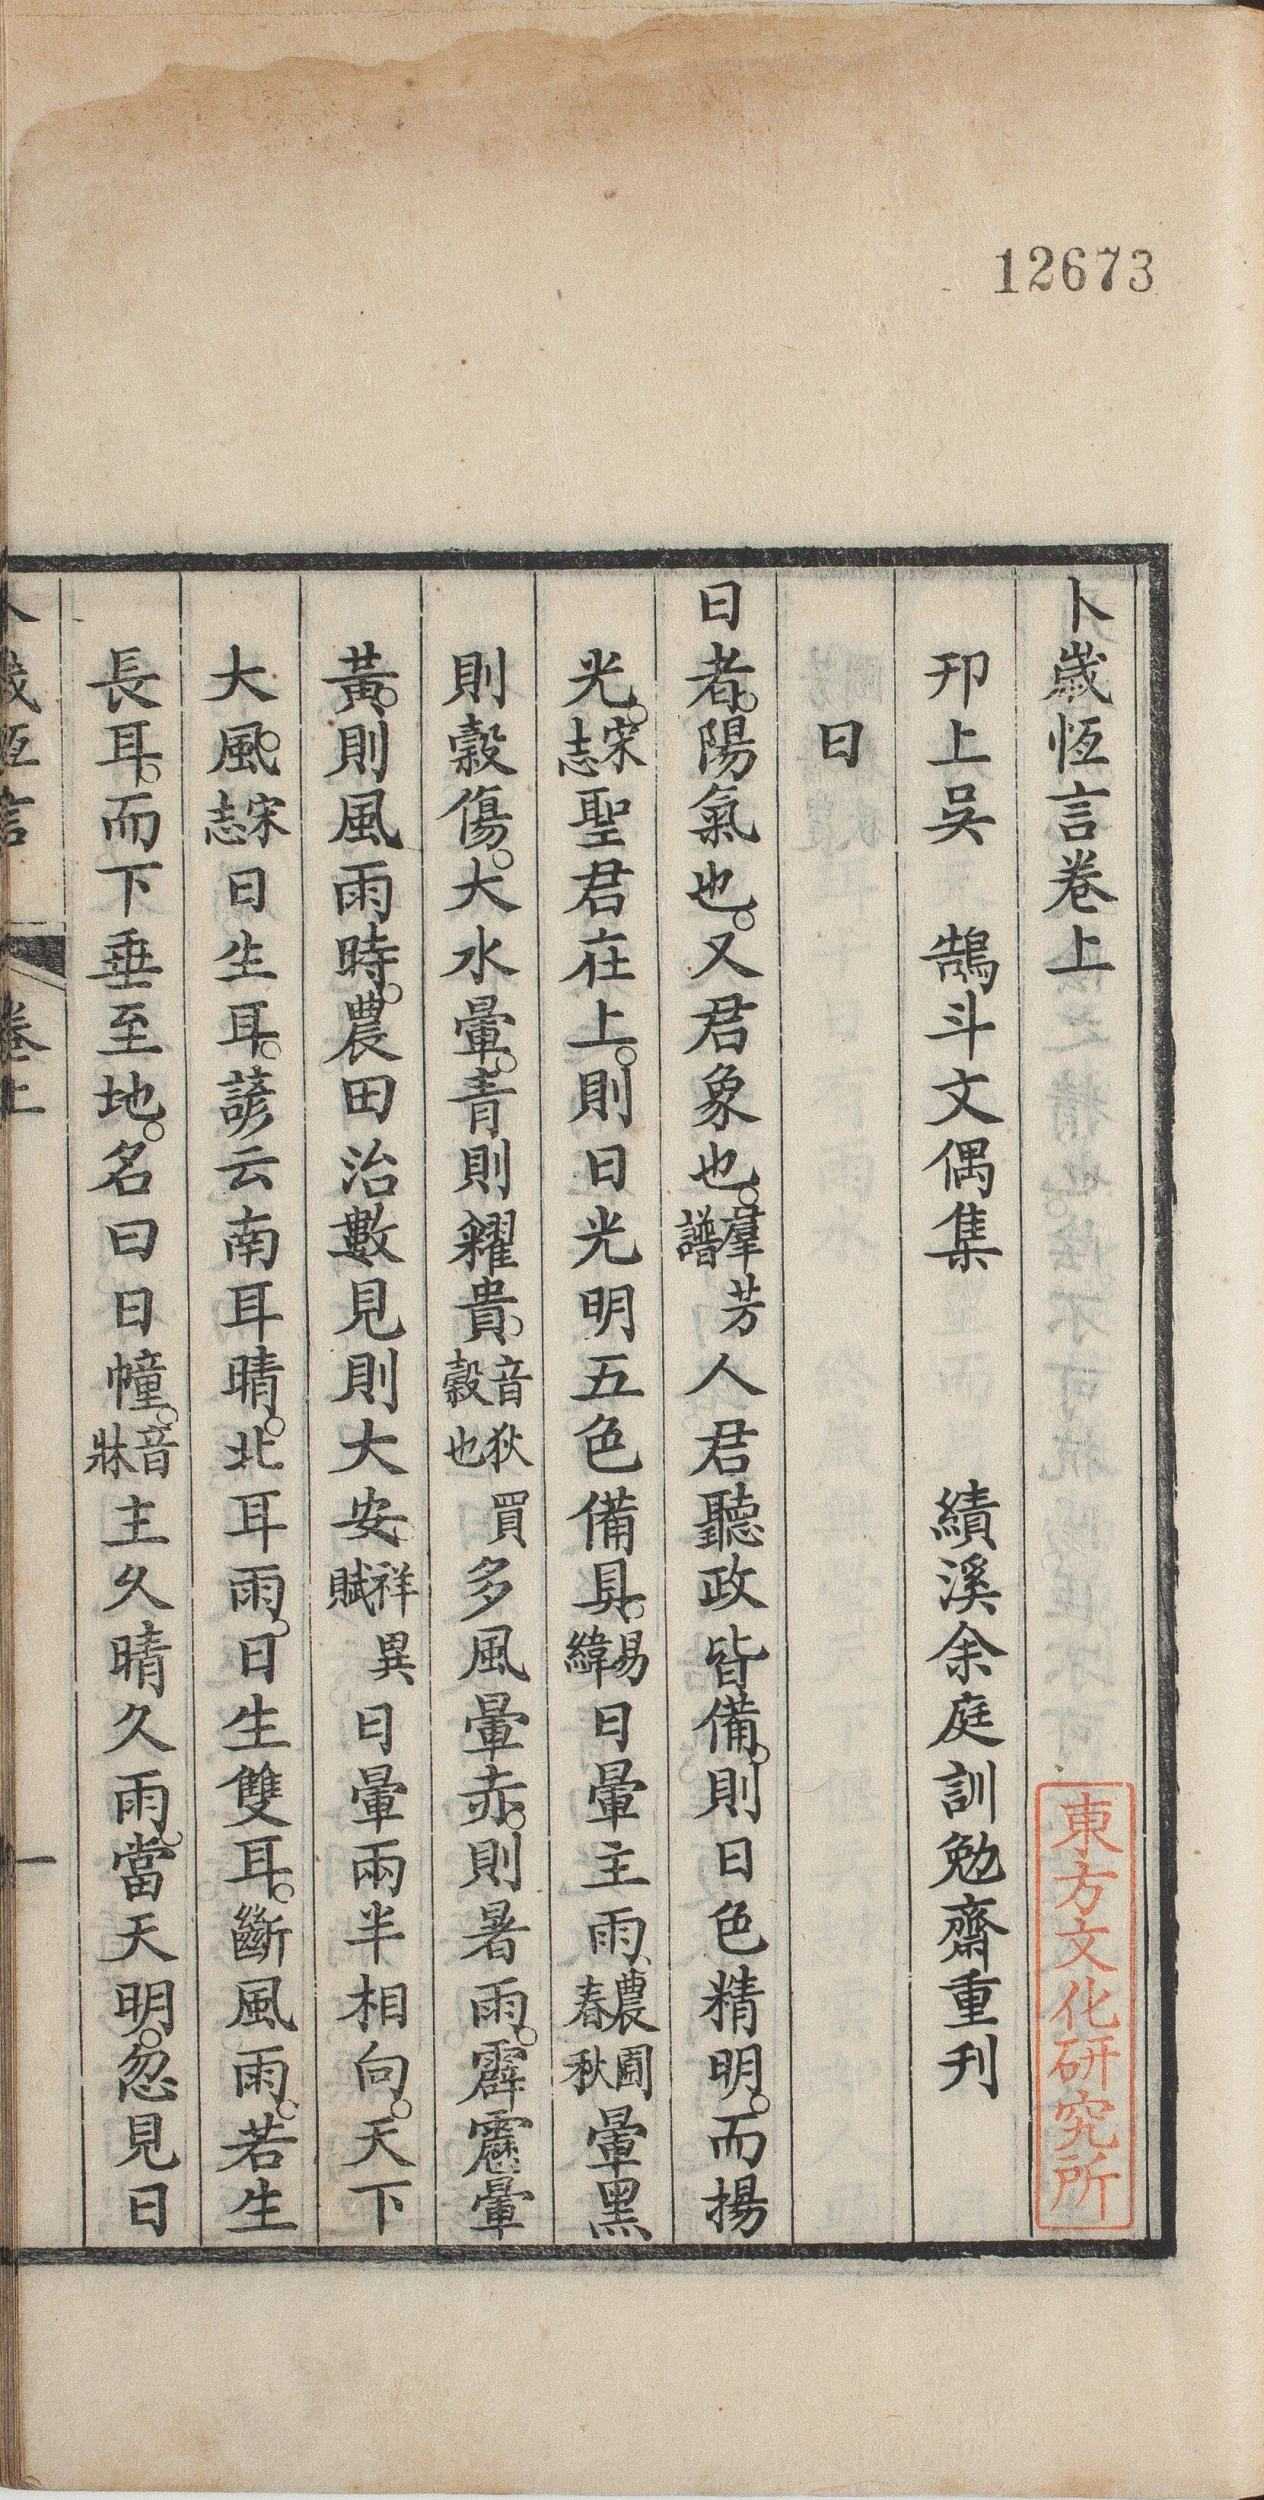 12673
卜歲恆言卷上
東方文化研究所
邘上吳 鵠斗文偶集 績溪余庭訓勉齋重刊
日
日者陽氣也又君象也羣芳譜人君聽政皆備則日色精明而揚
光宋志聖君在上則日光明五色備具易緯日暈主雨農圃春秋暈黑
則穀傷大水暈青則糴貴音狄買穀也多風暈赤則暑雨霹靂暈
黃則風雨時農田治數見則大安祥異賦日暈兩半相向天下
大風宋志日生耳諺云南耳晴北耳雨日生雙耳斷風雨若生
長耳而下垂至地名曰日幢音牀主久晴久雨當天明忽見日
卜歲恆言 卷上 一